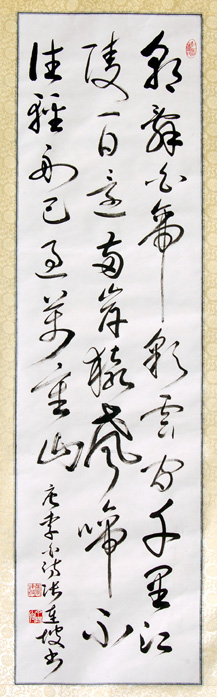 朝辭白帝彩雲間千里江
陵一日還兩岸猿聲啼不
住輕舟已過萬重山
唐李白詩張連坡書